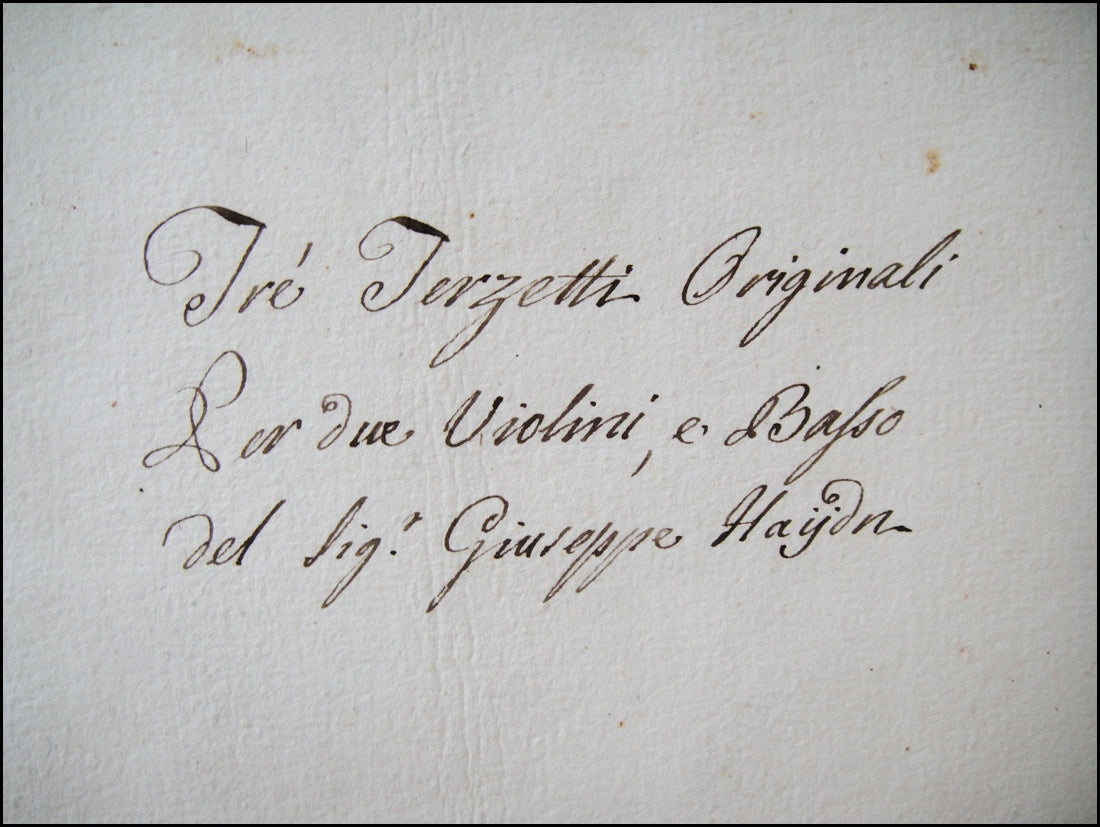 Tré Terzetti Originali
Per due Violini, e Baſso
del Sig.r Giuseppe Haÿdn